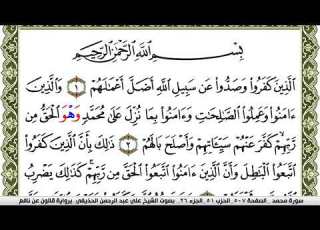 بِسْمِ اللَّهِ الرَّحْمَٰنِ الرَّحِيمِ
الَّذِينَ كَفَرُوا وَصَدُّوا عَن سَبِيلِ اللَّهِ أَضَلَّ أَعْمَٰلَهُمْ ١ وَالَّذِينَ
ءَامَنُوا وَعَمِلُوا الصَّٰلِحَٰتِ وَءَامَنُوا بِمَا نُزِّلَ عَلَىٰ مُحَمَّدٍ وَهْوَ الْحَقُّ مِن
رَّبِّهِمْ كَفَّرَ عَنْهُمْ سَيِّـَٔاتِهِمْ وَأَصْلَحَ بَالَهُمْ ٢ ذَٰلِكَ بِأَنَّ الَّذِينَ كَفَرُوا
اتَّبَعُوا الْبَٰطِلَ وَأَنَّ الَّذِينَ ءَامَنُوا اتَّبَعُوا الْحَقَّ مِن رَّبِّهِمْ كَذَٰلِكَ يَضْرِبُ
سورة محمد _ الصفحة ٥٠٧ _ الحزب ٥١ _ الجزء ٢٦ _ بصوت الشيخ علي عبد الرحمن الحذيفي _ برواية قالون عن نافع